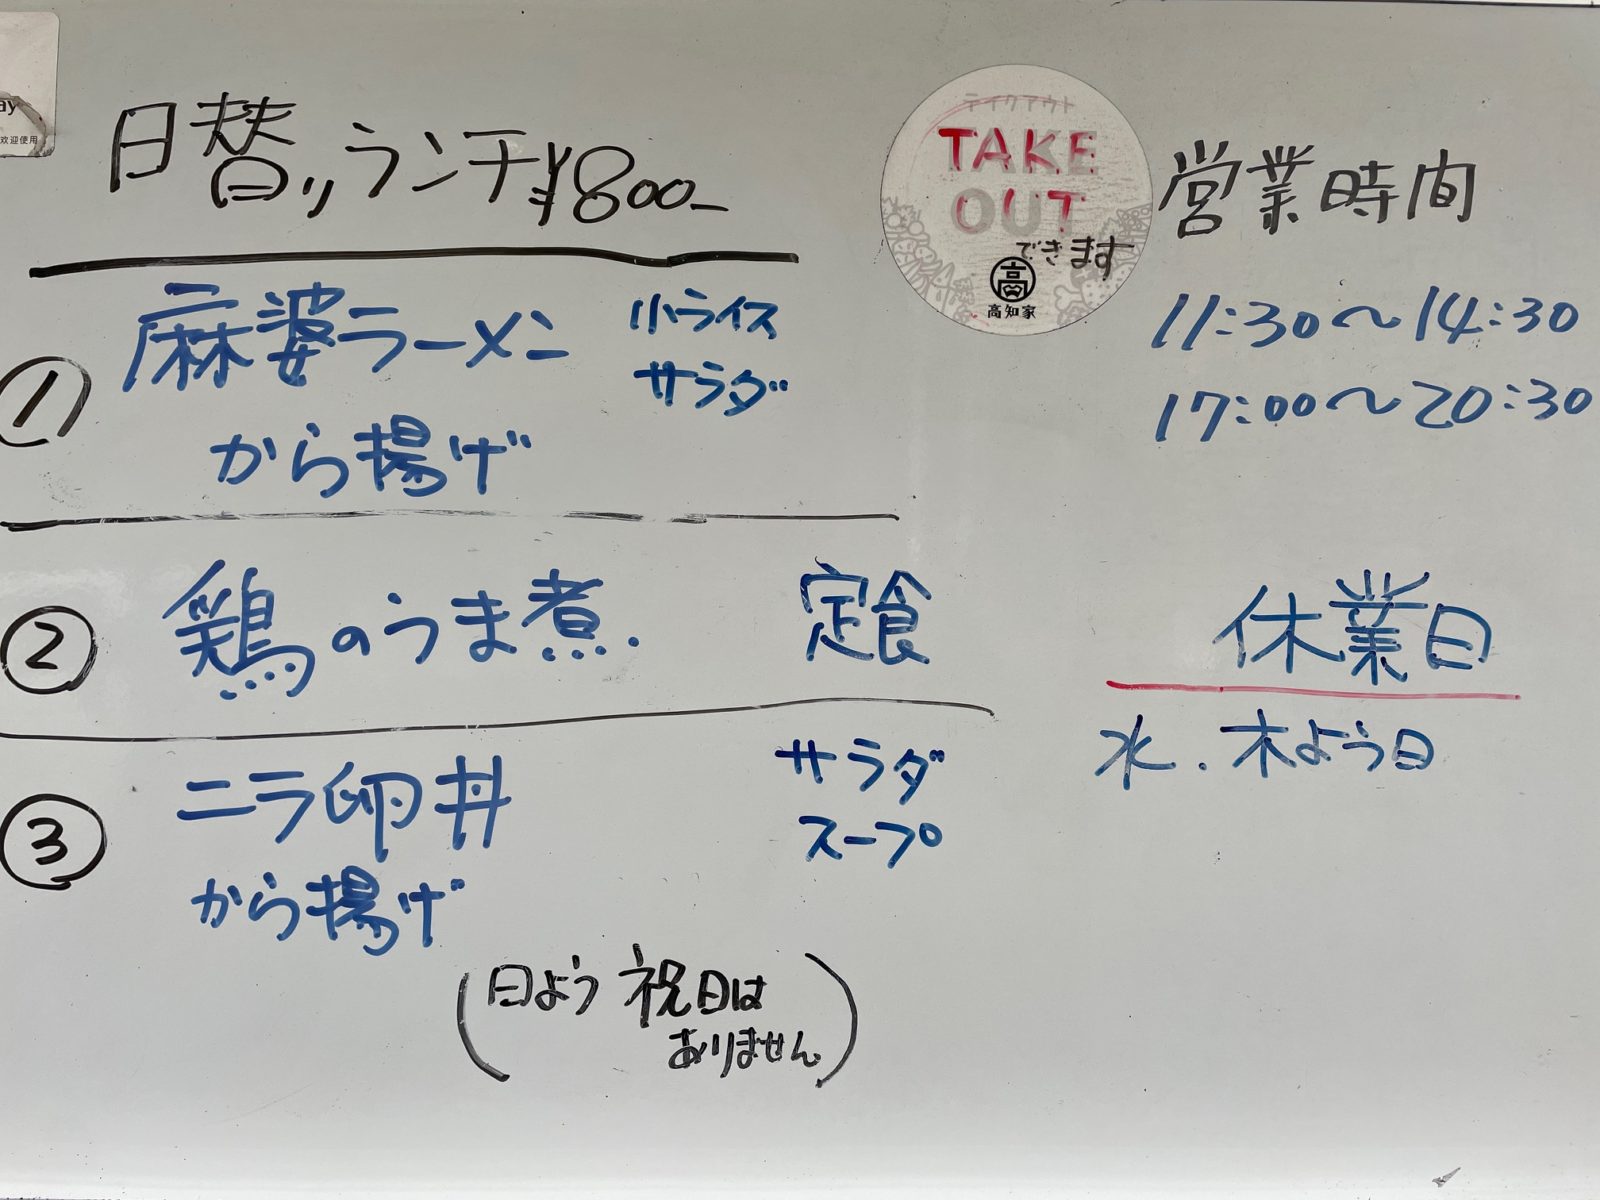 ay
欢迎使用
日替りランチ¥800-
① 麻婆ラーメン 小ライス
サラダ
から揚げ
② 鶏のうま煮. 定食
③ ニラ卵丼 サラダ
スープ
から揚げ
(日よう 祝日は
ありません)
テイクアウト
TAKE
OUT
できます
高
高知家
営業時間
11:30〜14:30
17:00〜20:30
休業日
水.木よう日